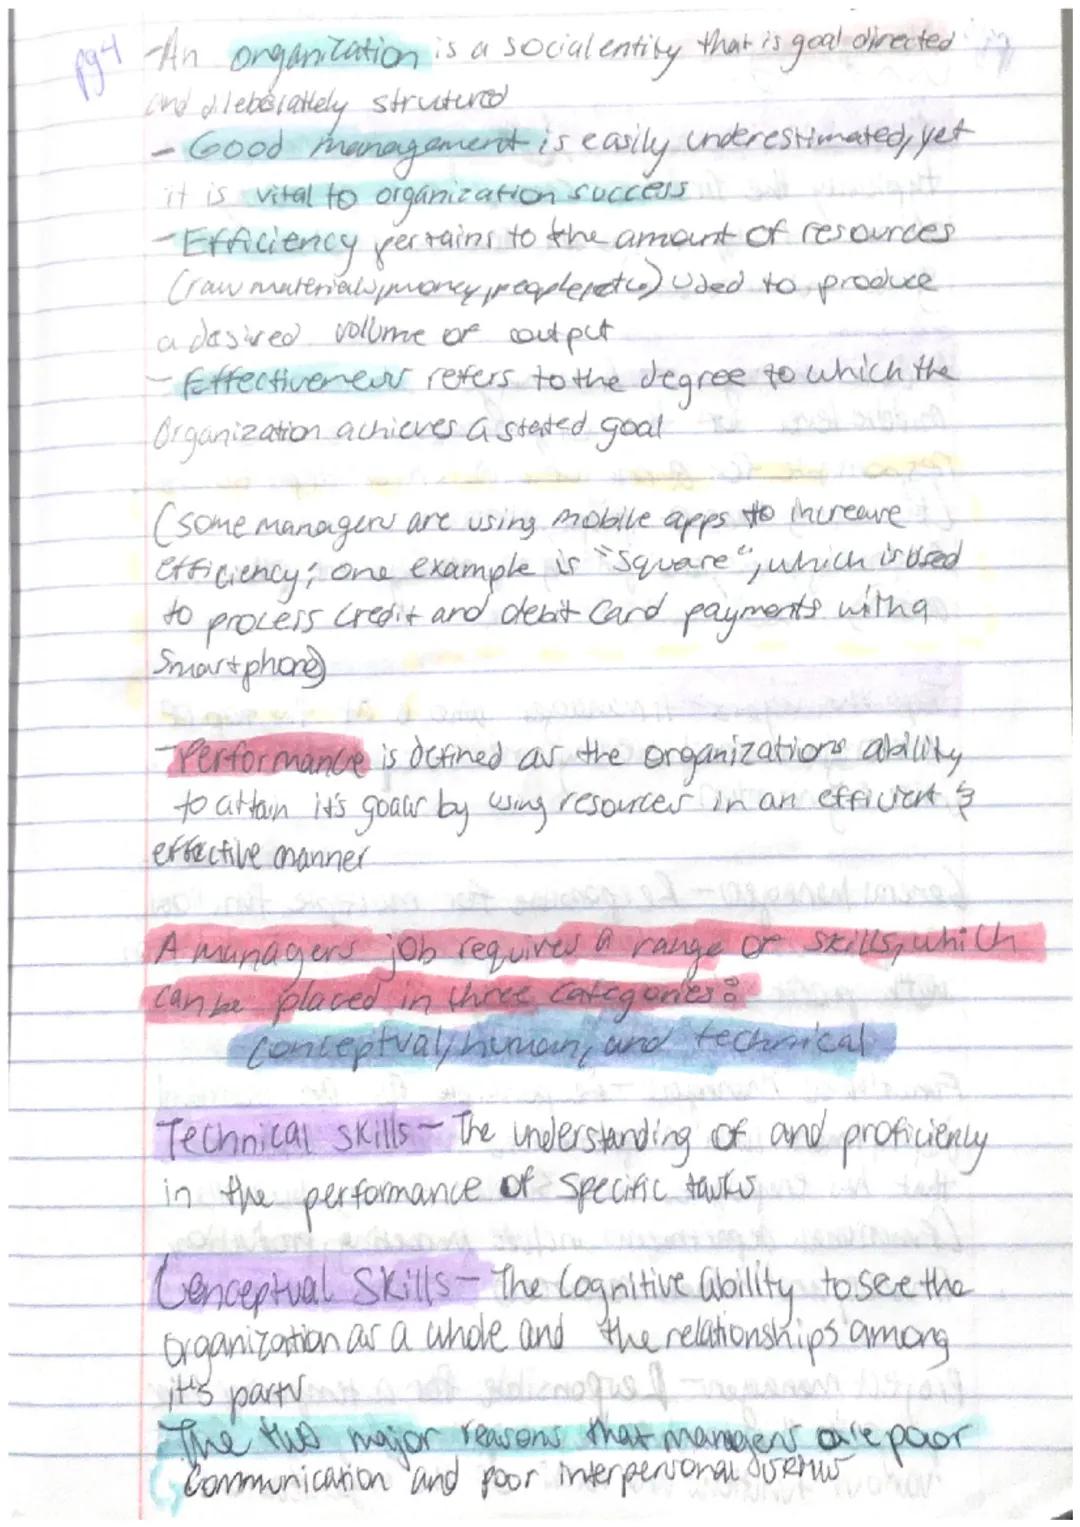 pg 4
-An organization is a social entity that is goal directed
and dileberattely strutured
- Good management is easily underestimated, yet
it is vital to organization success
- Efficiency pertains to the amount of resources
(raw materials, money, people, etc) used to produce
a desired volume of output
- Effectiveness refers to the degree to which the
Organization achieves a stated goal
(some managers are using mobile apps to increase
efficiency; one example is "Square", which is used
to process credit and debit card payments with a
Smartphone)
-Performance is defined as the organizations ability
to attain it's goals by using resources in an efficient &
effective manner
A managers job requires a range of skills, which
can be placed in three categories:
conceptual, human, and technical
Technical skills - The understanding of and proficiency
in the performance of specific tasks
Conceptual Skills - The Cognitive ability to see the
organization as a whole and the relationships among
it's parts
The two major reasons that managers are poor
Communication and poor interpersonal skills